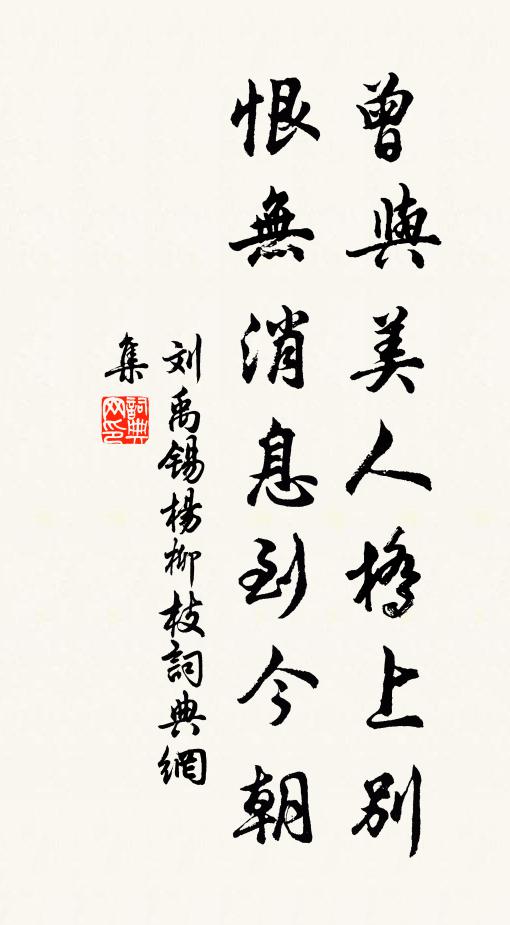 曾與美人橋上別
恨無消息到今朝
刘禹锡楊柳枝詞典網
集
詞典
网印